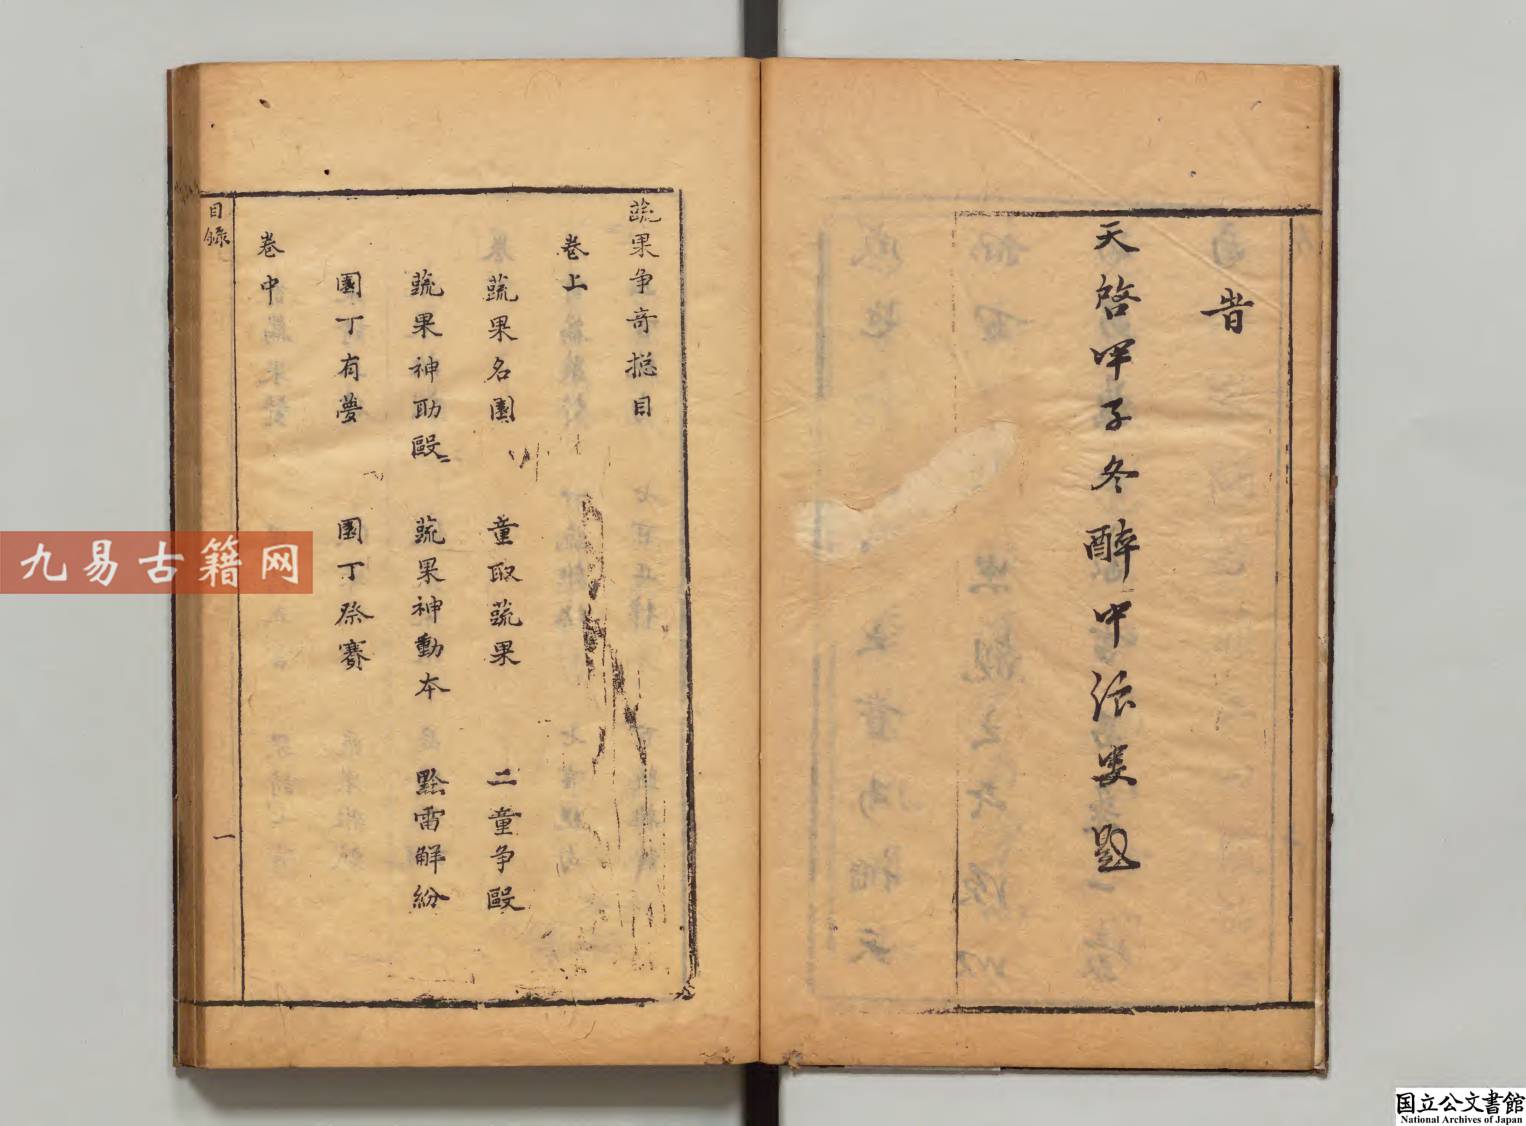 旹
天啓甲子冬醉中浪叟題
蔬果争奇搃目
卷上
蔬果名園 童取蔬果 二童争毆
蔬果神助毆 蔬果神動本 黙雷解紛
園丁有夢 園丁祭賽
卷中
目錄
一
九易古籍网
国立公文書館
National Archives of Japan